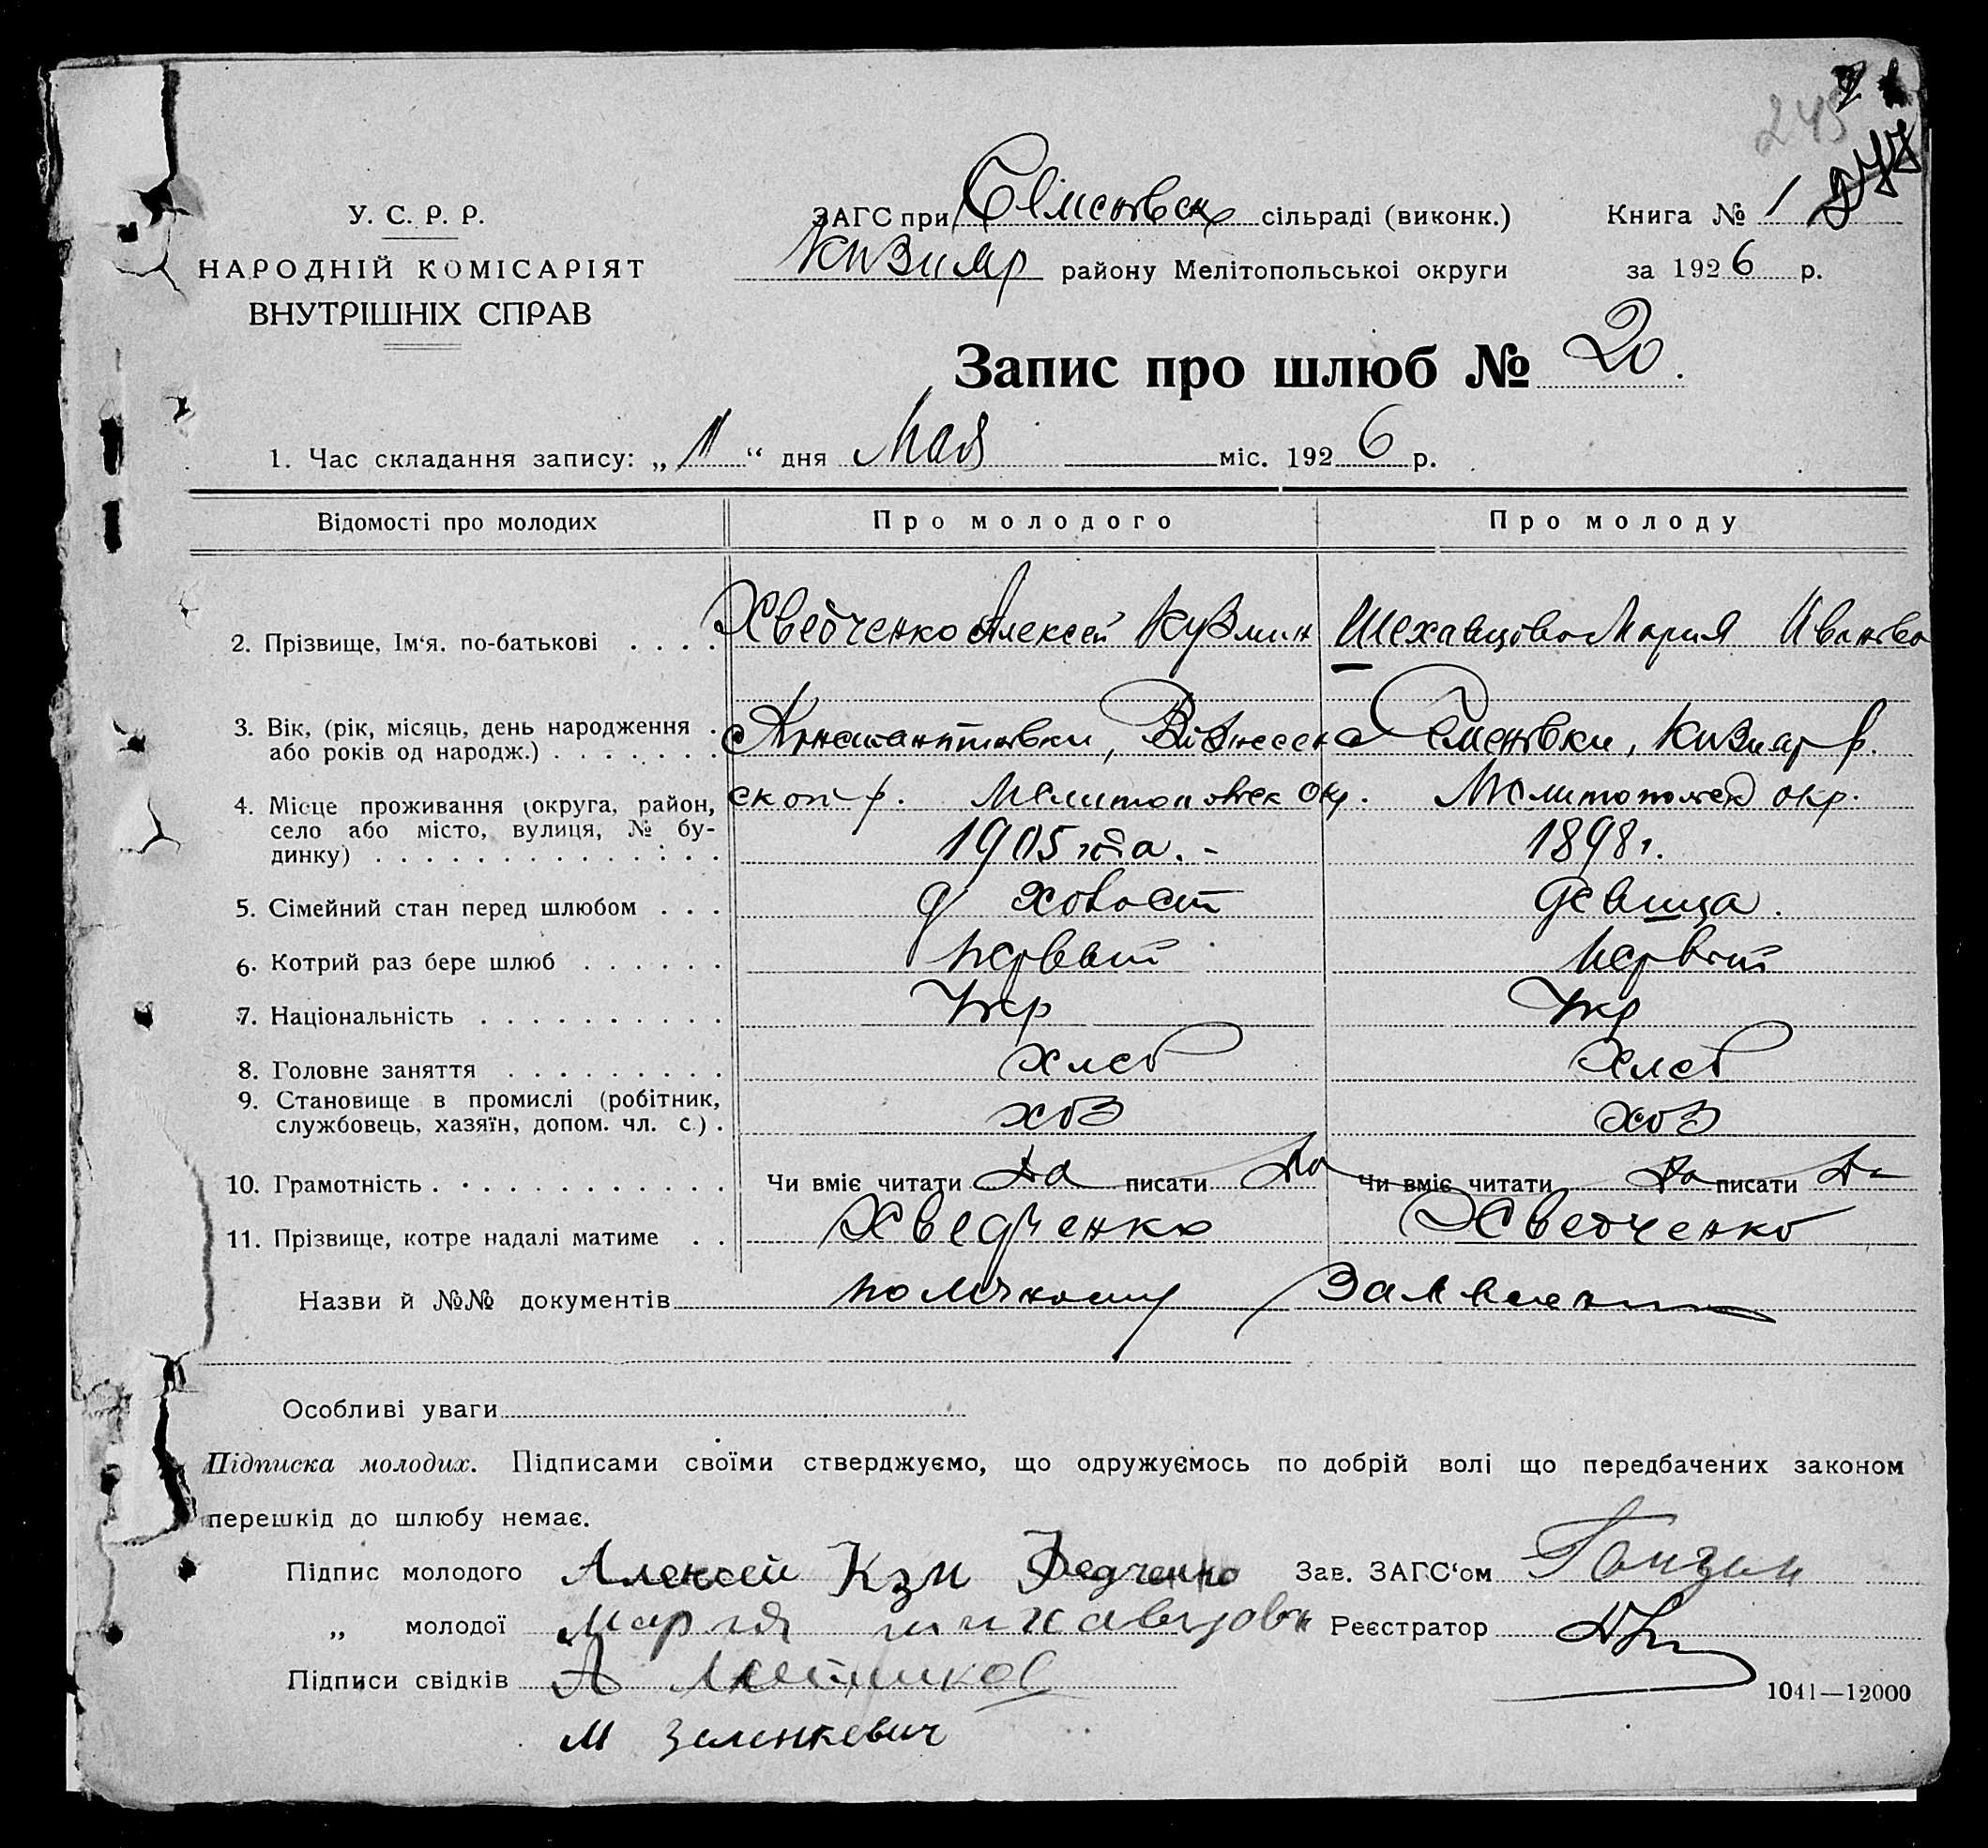 245
У. С. Р. Р.
НАРОДНІЙ КОМІСАРІЯТ
ВНУТРІШНІХ СПРАВ
ЗАГС при Семеновск сільраді (виконк.) Книга № 1
Кизияр району Мелітопольської округи за 1926 р.
Запис про шлюб № 20.
1. Час складання запису: „11“ дня Мая міс. 1926 р.
Відомості про молодих Про молодого Про молоду
2. Прізвище, Ім'я, по-батькові . . . . Хведченко Алексей Кузмин Шехавцова Мария Иванова
3. Вік, (рік, місяць, день народження . або років од народж.) . . . . . . . с Константиновки, Вознесен с Семеновки, Кизияр р.
4. Місце проживання (округа, район, село або місто, вулиця, № будинку) . . . . . ског р. Мелитопольск окр. Мелитопольск окр.
1905 года. - 1898 г.
5. Сімейний стан перед шлюбом . . . холост девица.
6. Котрий раз бере шлюб . . . . . . первый первый
7. Національність . . . . . . . . . . Укр Укр
8. Головне заняття . . . . . . . . . хлеб хлеб
9. Становище в промислі (робітник, службовець, хазяїн, допом. чл. с.) . хоз хоз
10. Грамотність . . . . . . . . . . . . Чи вміє читати да писати да Чи вміє читати да писати да
11. Прізвище, котре надалі матиме . . Хведченко Хведченко
Назви й №№ документів по личному заявлению
Особливі уваги
Підписка молодих. Підписами своїми стверджуємо, що одружуємось по добрій волі що передбачених законом
перешкід до шлюбу немає.
Підпис молодого Алексей Кзм Федченко Зав. ЗАГС'ом
„ молодої Мария шихавцова Реєстратор
Підписи свідків А
1041—12000
М Зеленкевич